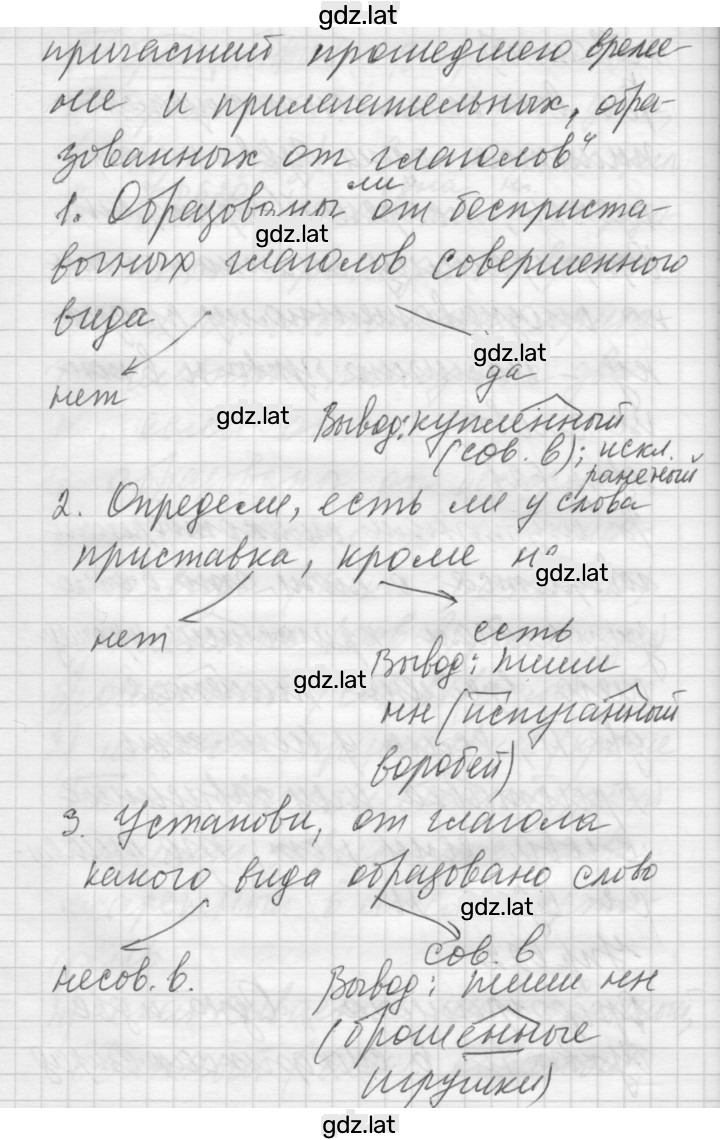 gdz.lat
причастий прошедшего време-
ни и прилагательных, обра-
зованных от глаголов"
ли
1. Образованы от бесприста-
gdz.lat
вочных глаголов совершенного
вида
gdz.lat
нет
да
gdz.lat
Вывод: купленный
(сов. в); искл.
раненый
2. Определи, есть ли у слова
приставка, кроме не
gdz.lat
нет
есть
gdz.lat
Вывод: пиши
нн (испуганный
воробей)
3. Установи, от глагола
какого вида образовано слово
gdz.lat
несов. в.
сов. в
Вывод: пиши нн
(брошенные
игрушки)
gdz.lat